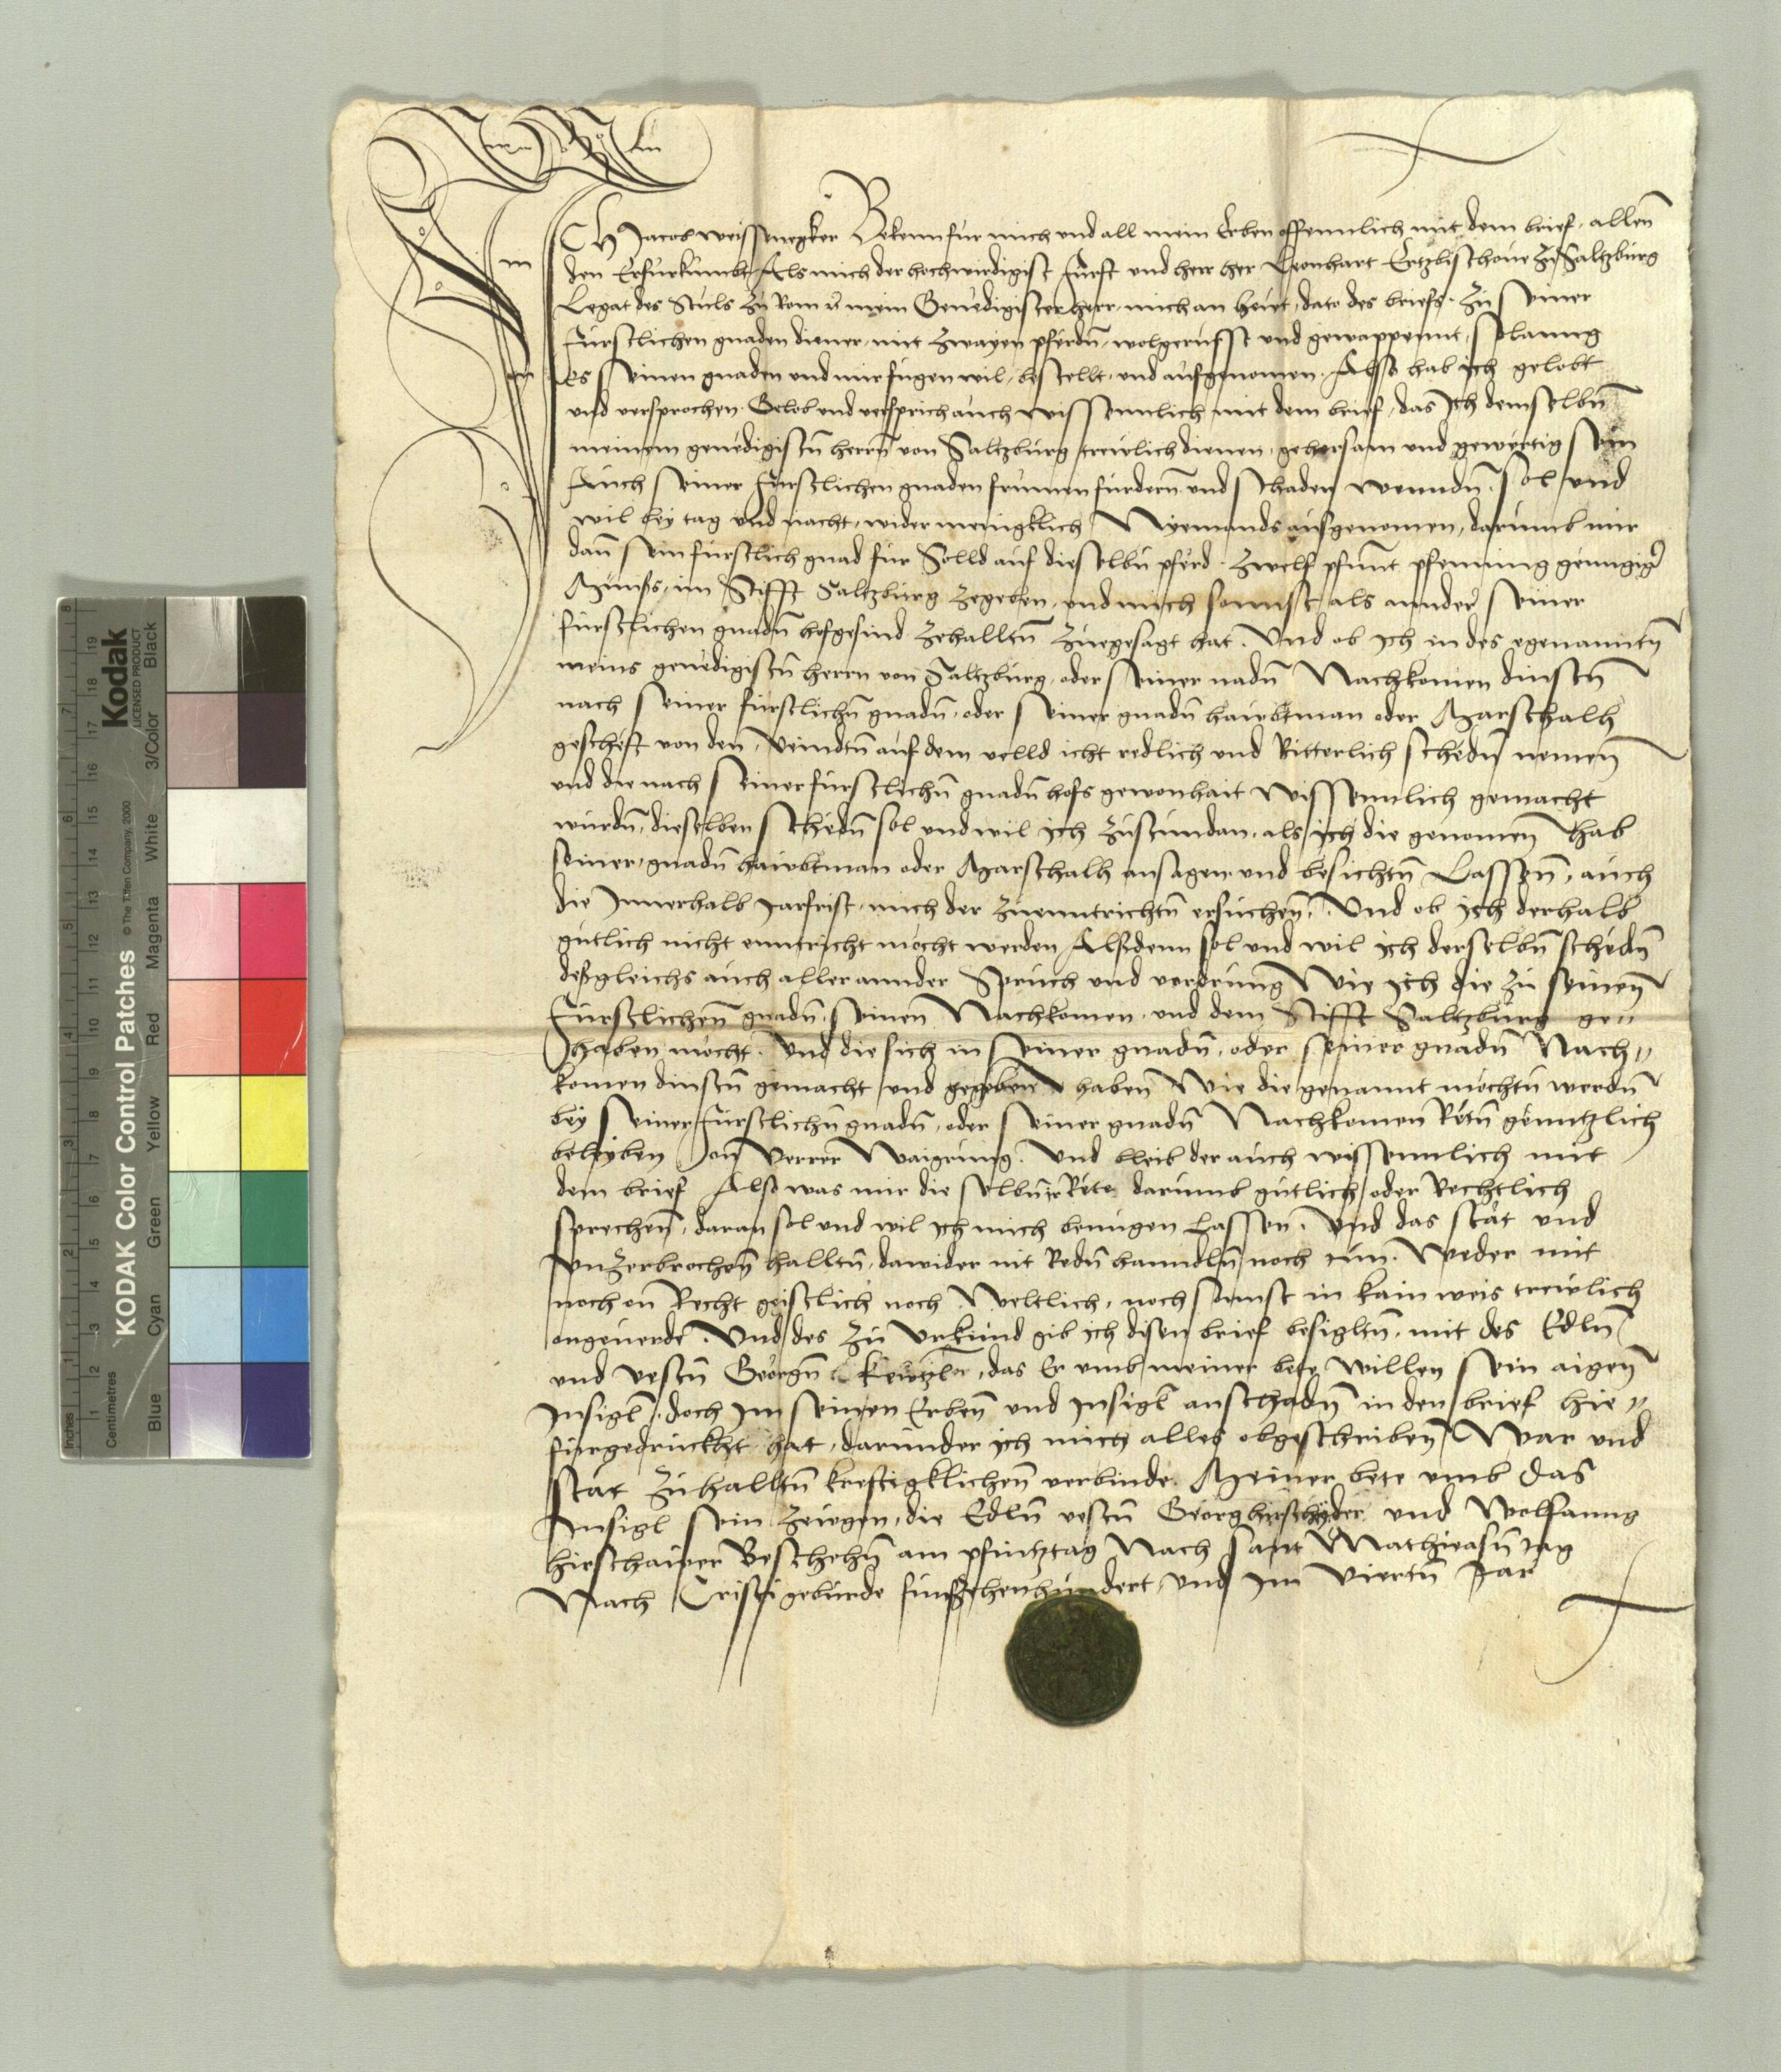 Ich Jacob weissenegker Bekenn fur mich und all mein Erben offennlich mit dem brief, allen
den Er furkumbt, Als mich der hochwirdigist furst und herr her Leonhart Ertzbischove zu Saltzburg
Legat des Stuls zu Rom mein Genedigister herr, mich an heut, dato des briefs, zu seiner
furstlichen gnaden diener, mit zwayen pferdn, wolgerusst und gewappennt, solanng
es seinen gnaden und mir fugen wil, bestellt, und aufgenomen. Also hab ich gelobt
und versprochen. Gelob und versprich auch wissenntlich mit dem brief, das Ich demselbn
meinem genedigistn herrn von Saltzburg treulich dienen, gehorsam und gewertig sein
Auch seiner furstlichen gnaden frumen furdern und schaden wenndn. sol und
wil bey tag und nacht, wider menigklich Nyemands ausgenomen, darumb mir
dann sein furstlich gnad fur Solld auf dieselbn pferd. zwelf pfunt pfenning genngiger
Munss, im Stifft Saltzburg zegeben, und mich sonnst als annder seiner
furstlichen gnadn hofgesind zehalltn zuegesagt hat. Und ob ich in des egenanntn
meins genedigistn herrn von Saltzburg, oder seiner nadn Nachkomen dinstn
nach seiner furstlichn gnadn, oder seiner gnadn haubtman oder Marschalh
gescheft von den Veindtn auf dem velld icht redlich und Ritterlich schedn nemen
und die nach seiner furstlichn gnadn hofs gewonhait wissenntlich gemacht
wurdn, dieselben schedn sol und wil ich zustundan, als ich die genomen hab
seiner, gnadn haubtman oder Marschalh ansagen und besichtn Lassen, auch
die Innerhalb Jarfrist, mich der zuenntrichtn ersuchen. Und ob ich derhalb
gutlich nicht enntricht mocht werden Alsdenn sol und wil ich derselbn schedn
dessgleichs auch aller annder Spruch und vordrung Wie ich die zu seinen
furstlichen gnadn, seinen Nachkomen, und dem Stifft Saltzburg ge//
haben mocht. Und die sich in seiner gnadn, oder seiner gnadn Nach//
komen dinstn gemacht und gegeben haben Wie die genannt mochtn werdn
bey seiner furstlichn gnadn, oder seiner gnadn Nachkomen Retn genntzlich
beleyben on Verrer Waigrung. Und bleib der auch wissenntlich mit
dem brief Also was mir dieselbn ir Rete darumb gutlich oder Rechtlich
sprechen, daran sol und wil ich mich benugen Lassen. Und das stat und
unzerbrochen halltn, dawider nit Redn hanndln noch tun. Weder mit
noch on Recht geistlich noch Weltlich, noch sonnst in kain weis treulich
ongeverde. Und des zu Urkund gib ich disen brief besigltn, mit des Edln
und vestn Georgn, das Er umb meiner bete willen sein aigen
Insigl, doch im seinen Erben und Insigl anschadn in den brief hie//
furgedruckht hat, darunder ich mich alles obgeschriben War und
stat zuhalltn kreftigklichen verbinde. Meiner bete umb das
Insigl sein zeugen, die Edln vestn Georg und Wolfganng
hirschauer Beschehn am pfintztag Nach Sant Mathieasn tag
Nach Cristi geburde funfzehenhundert, und im Viertn Jar